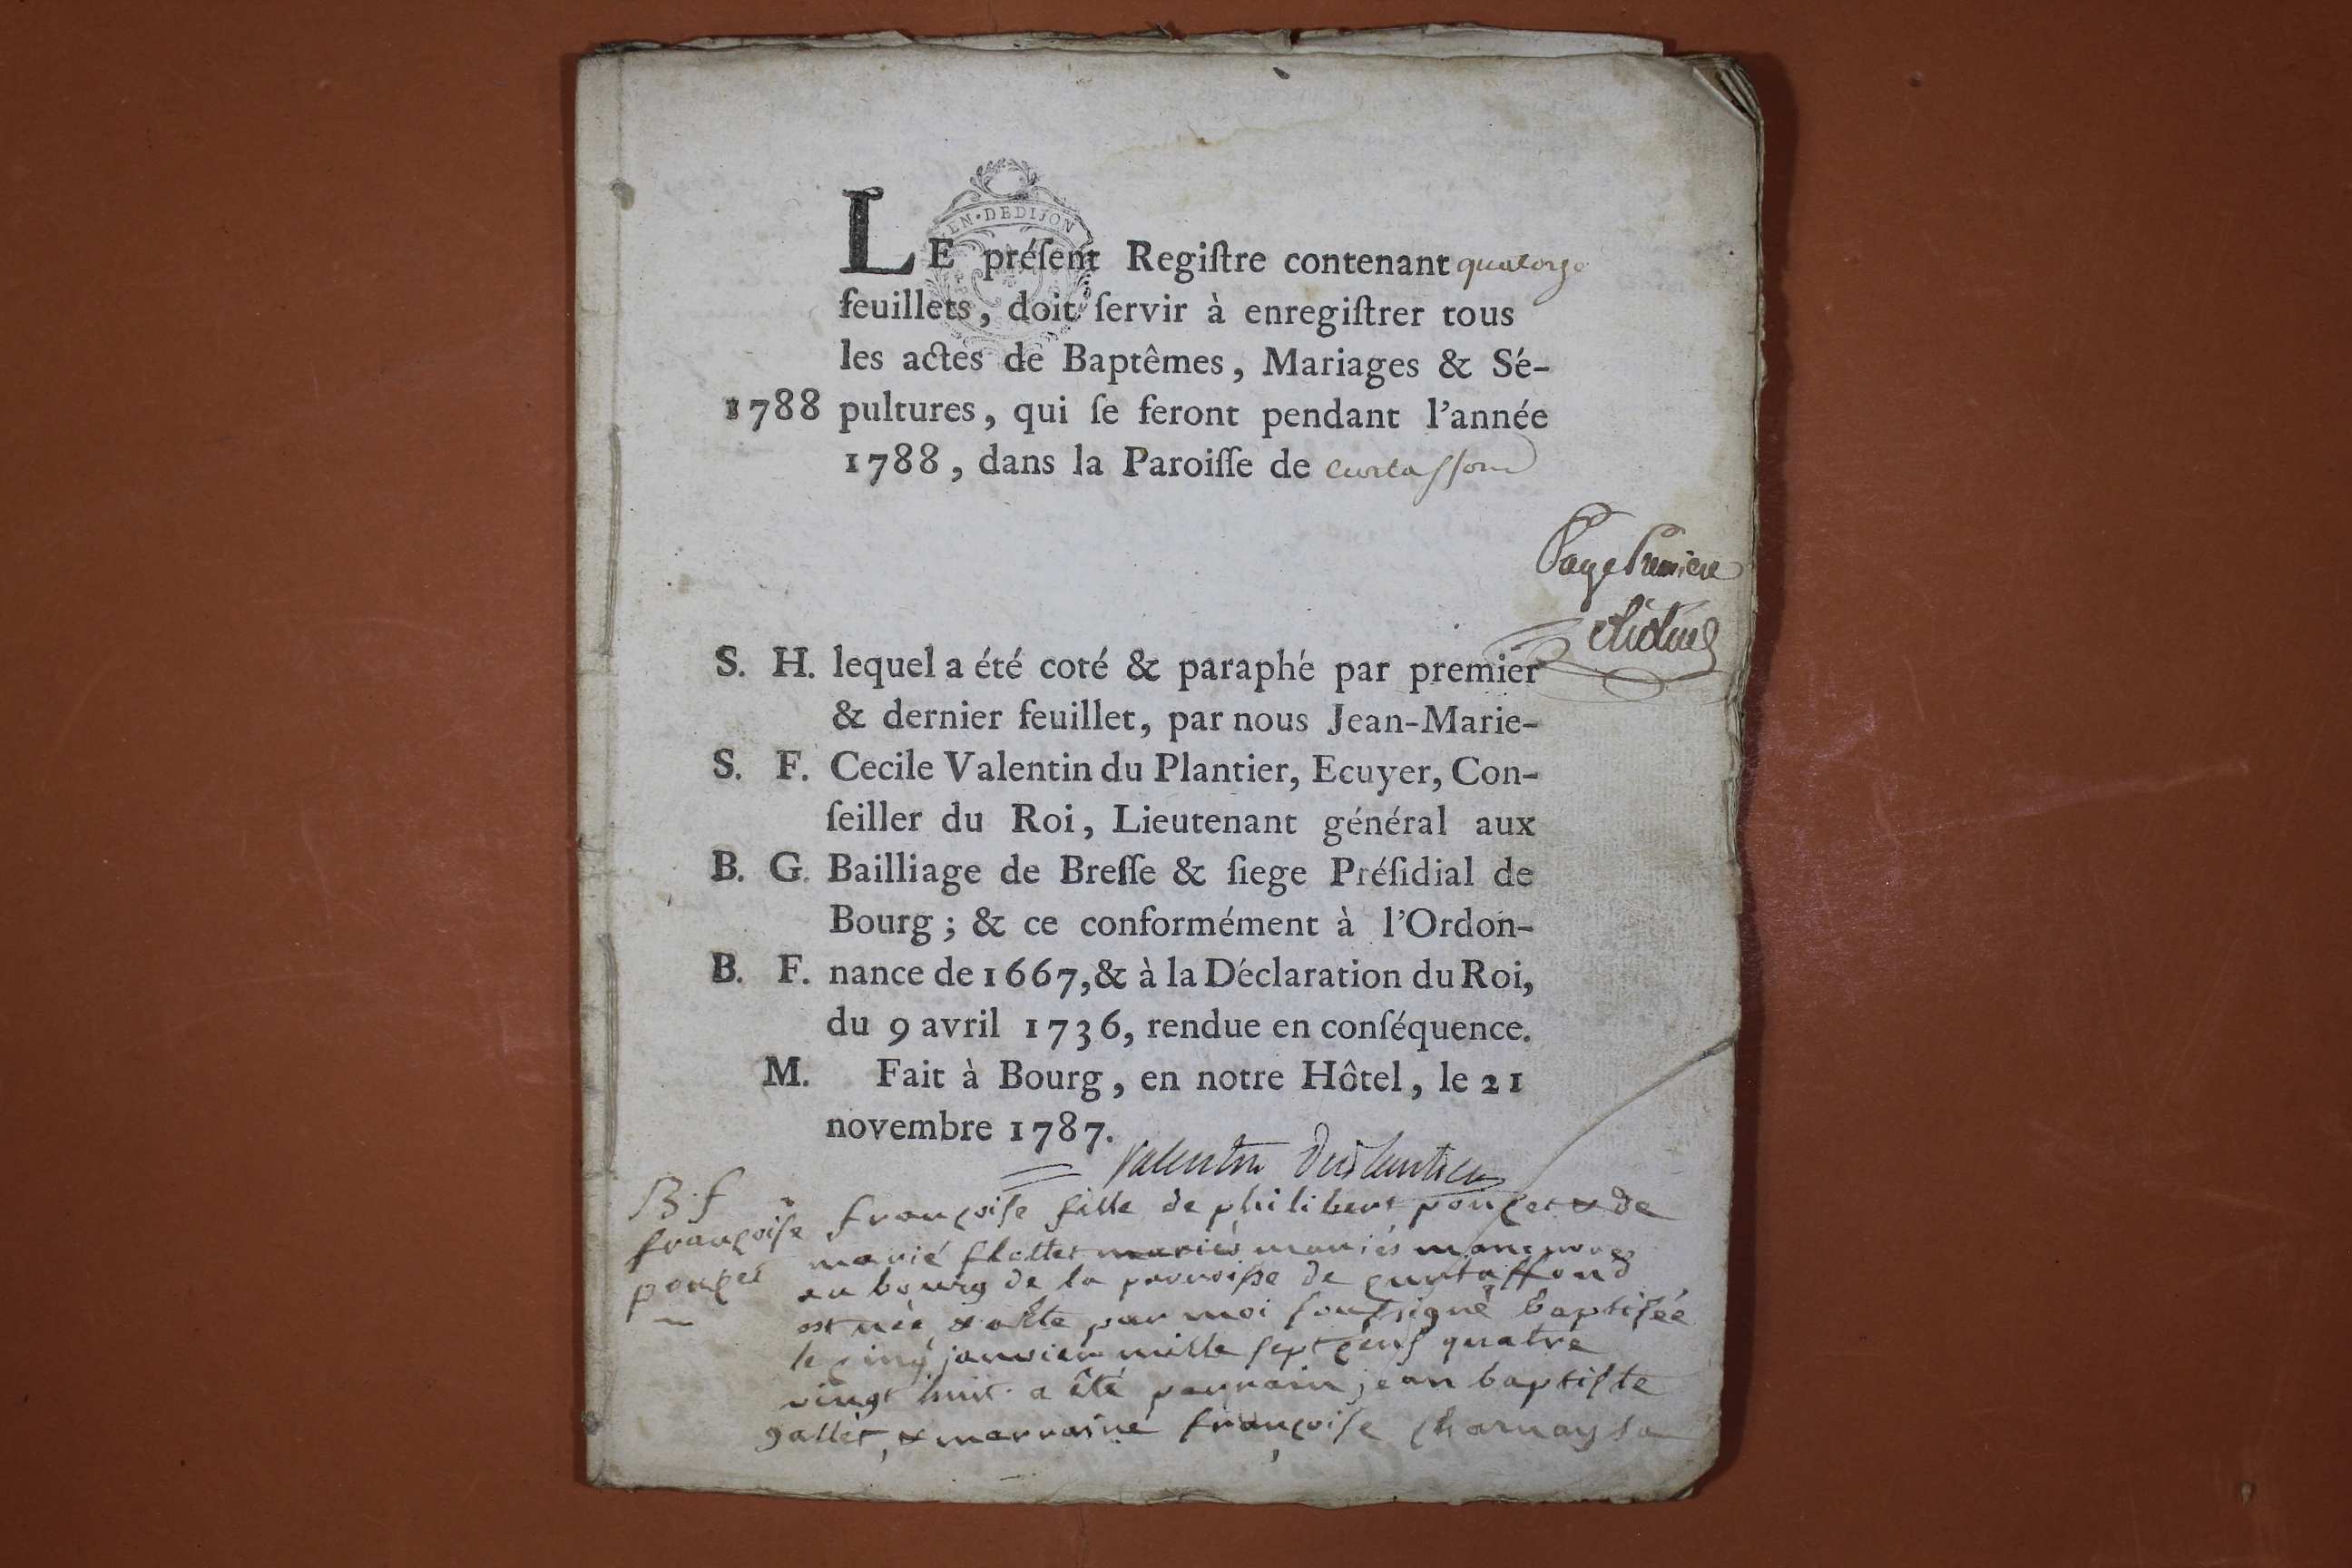 EN·DEDIJON
LE préſent Regiſtre contenant quatorze
feuillets, doit ſervir à enregiſtrer tous
les actes de Baptêmes, Mariages & Sé-
1788 pultures, qui ſe feront pendant l'année
1788, dans la Paroiſſe de curtaffond
Page Premiere
S. H. lequel a été coté & paraphé par premier
& dernier feuillet, par nous Jean-Marie-
S. F. Cecile Valentin du Plantier, Ecuyer, Con-
ſeiller du Roi, Lieutenant général aux
B. G. Bailliage de Breſſe & ſiege Préſidial de
Bourg; & ce conformément à l'Ordon-
B. F. nance de 1667, & à la Déclaration du Roi,
du 9 avril 1736, rendue en conſéquence.
M. Fait à Bourg, en notre Hôtel, le 21
novembre 1787.
Valentin Duplantier
B. f
françoiſe
ponçet
françoiſe fille de philibert ponçet & de
marié mariés mariés manouvres
au bourg de la parroiſse de curtaffond
est née & a été par moi ſouſsigné baptiſée
le çinq janvier mille ſept çens quatre
vingt huit a été parrain jean baptiſte
gallet, & marraine françoiſe charnay sa